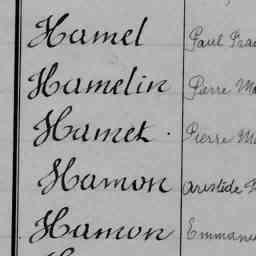 Hamel Paul
Hamelin Pierre
Hamet. Pierre
Hamon Aristide
Hamon